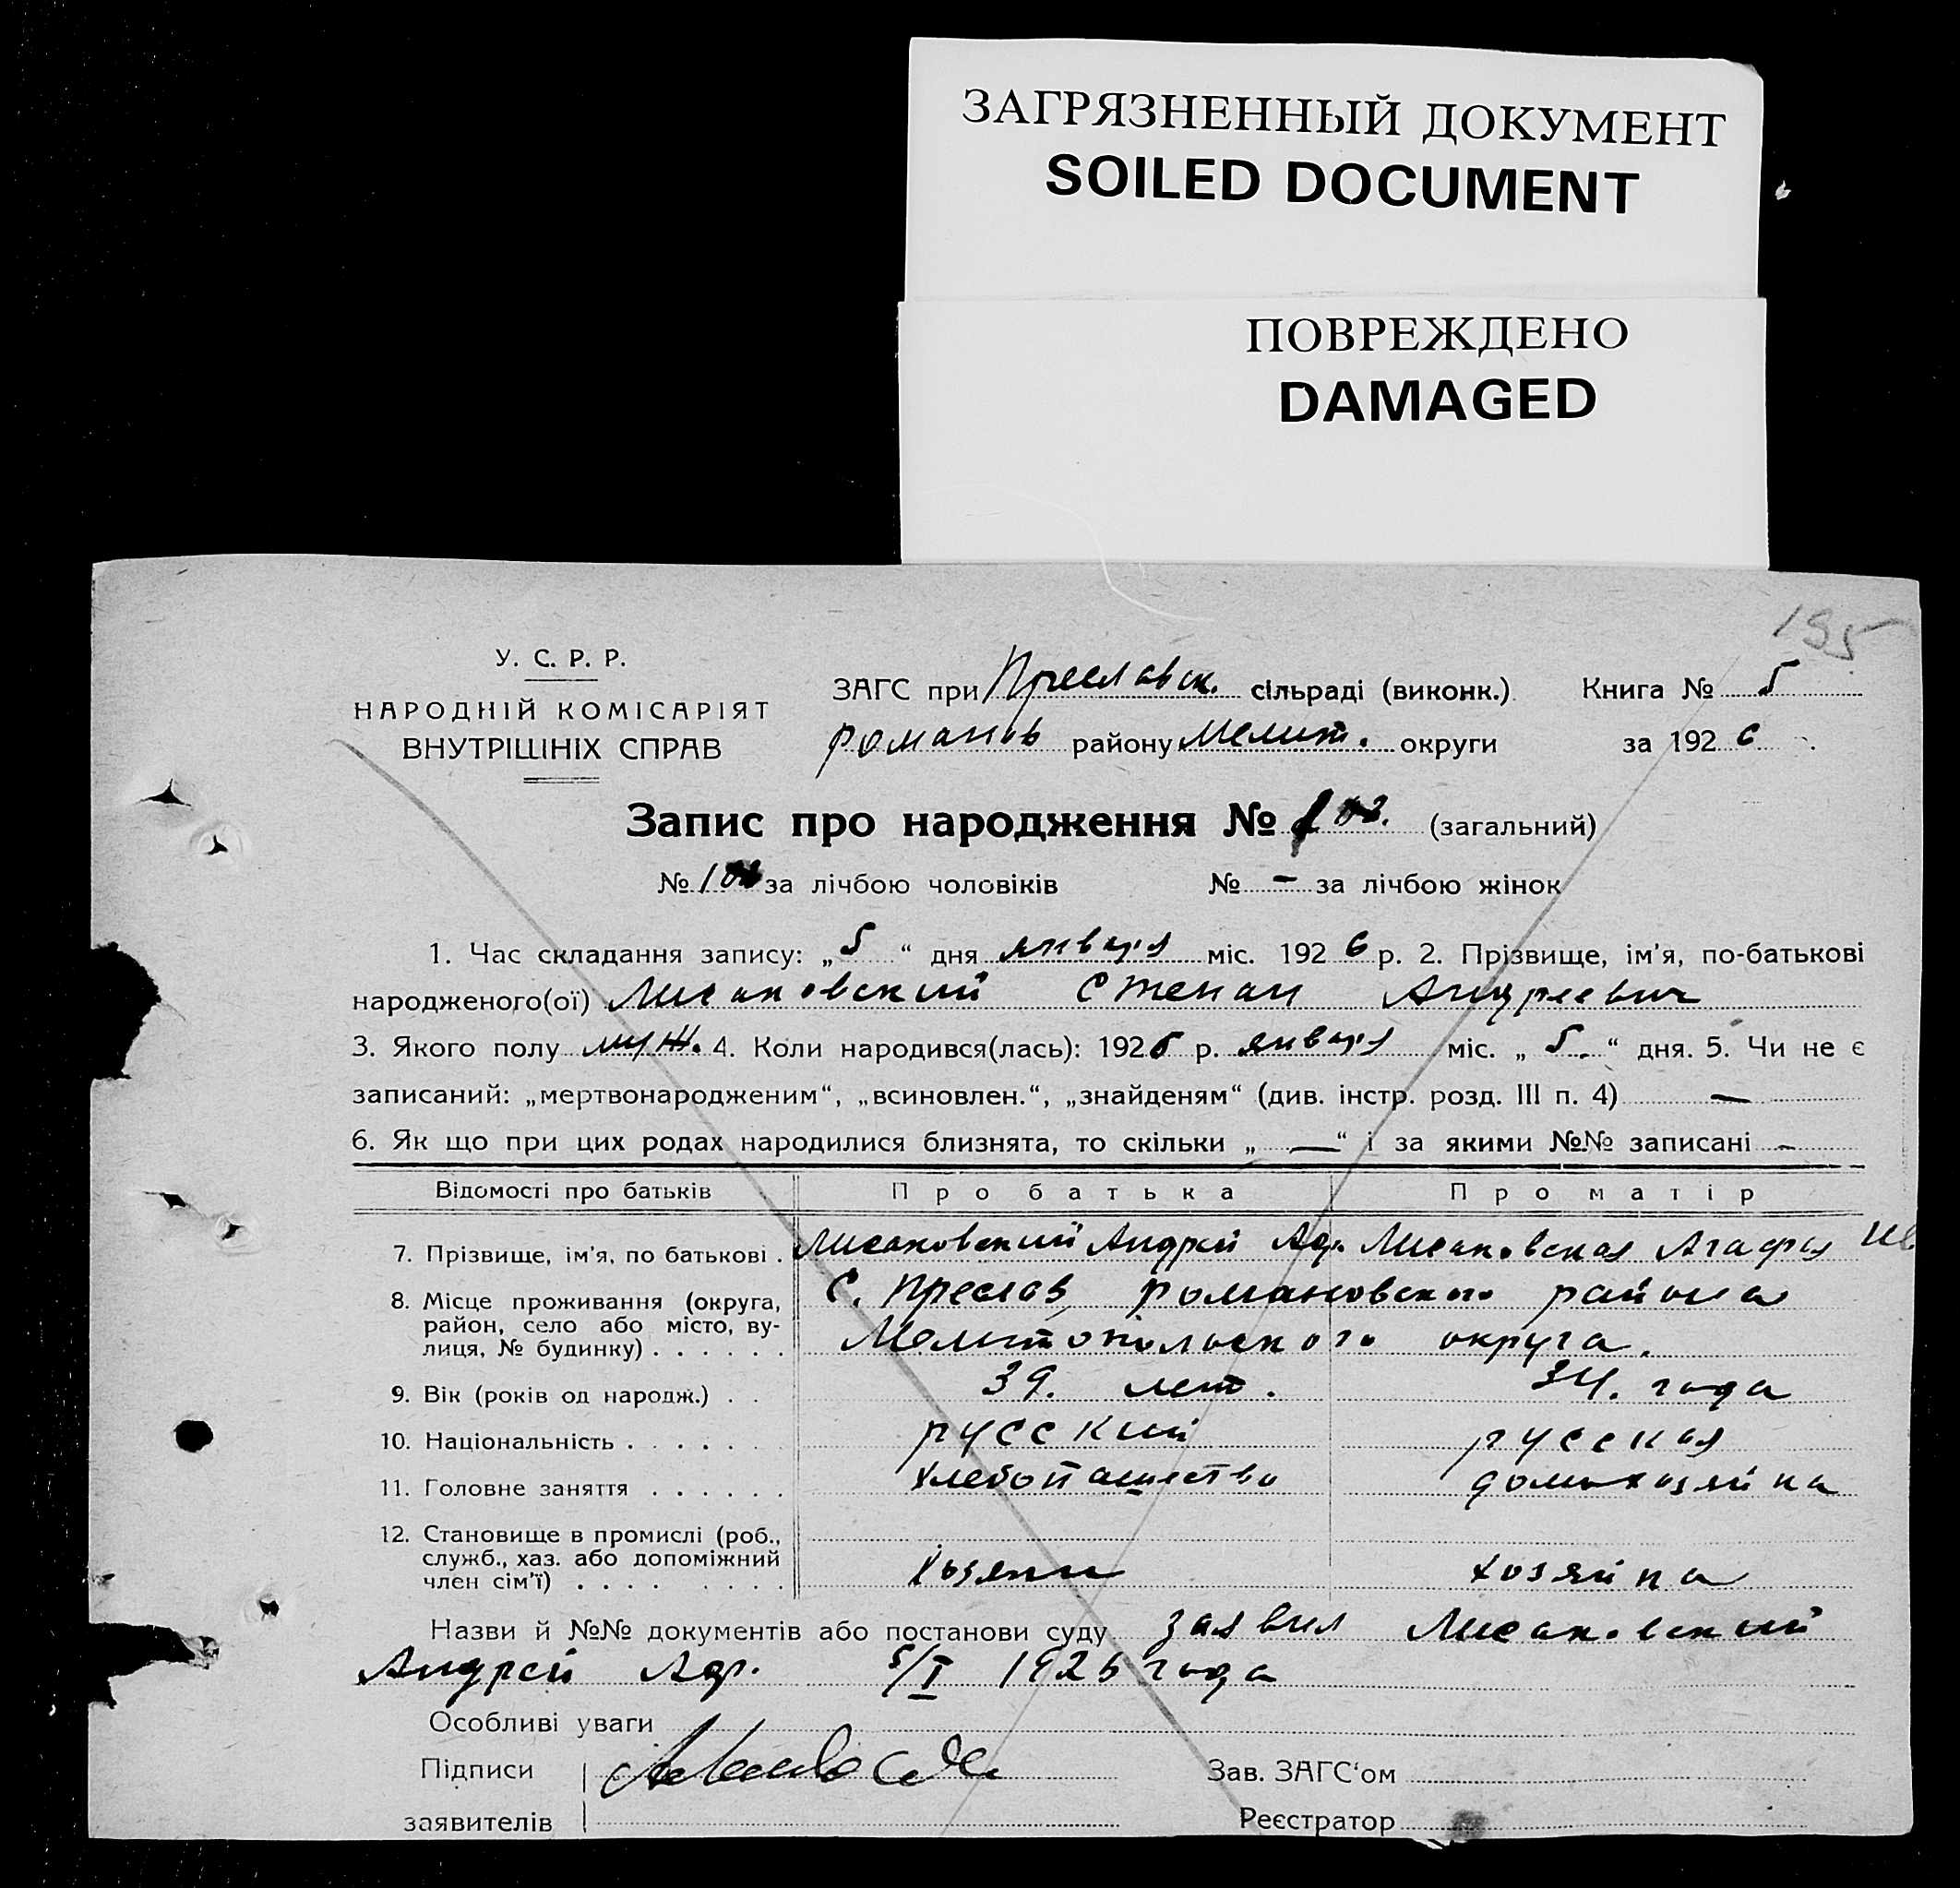 ЗАГРЯЗНЕННЫЙ ДОКУМЕНТ
SOILED DOCUMENT
ПОВРЕЖДЕНО
DAMAGED
195
У. С. Р. Р.
НАРОДНІЙ КОМІСАРІЯТ
ВНУТРІШНІХ СПРАВ
ЗАГС при Преславск. сільраді (виконк.) Книга № 5
романов району Мелит. округи за 1926
Запис про народження № (загальний)
№ за лічбою чоловіків № — за лічбою жінок
1. Час складання запису: „5“ дня января міс. 1926 р. 2. Прізвище, ім'я, по-батькові
народженого(ої) Мисаковский Степан Андреевич
3. Якого полу муж. 4. Коли народився(лась): 1926 р. января міс. „5.“ дня. 5. Чи не є
записаний: „мертвонародженим“, „всиновлен.“, „знайденям“ (див. інстр. розд. III п. 4) —
6. Як що при цих родах народилися близнята, то скільки „—“ і за якими №№ записані —
Відомості про батьків Про батька Про матір
7. Прізвище, ім'я, по батькові . Мисаковский Андрей Мисаковская Агафия Ив.
8. Місце проживання (округа, район, село або місто, вулиця, № будинку) . . . . . . С. Преслав, романовского района
Мелитопольского округа.
9. Вік (років од народж.) . . 39. лет. 34. года
10. Національність . . . . . . русский русская
11. Головне заняття . . . . . . хлебопашество домохозяйка
12. Становище в промислі (роб., служб., хаз. або допоміжний член сім'ї) . . . . . . . . хозяин хозяйка
Назви й №№ документів або постанови суду заявил Мисаковский
Андрей 5/I 1926 года
Особливі уваги
Підписи Зав. ЗАГС'ом
заявителів Реєстратор